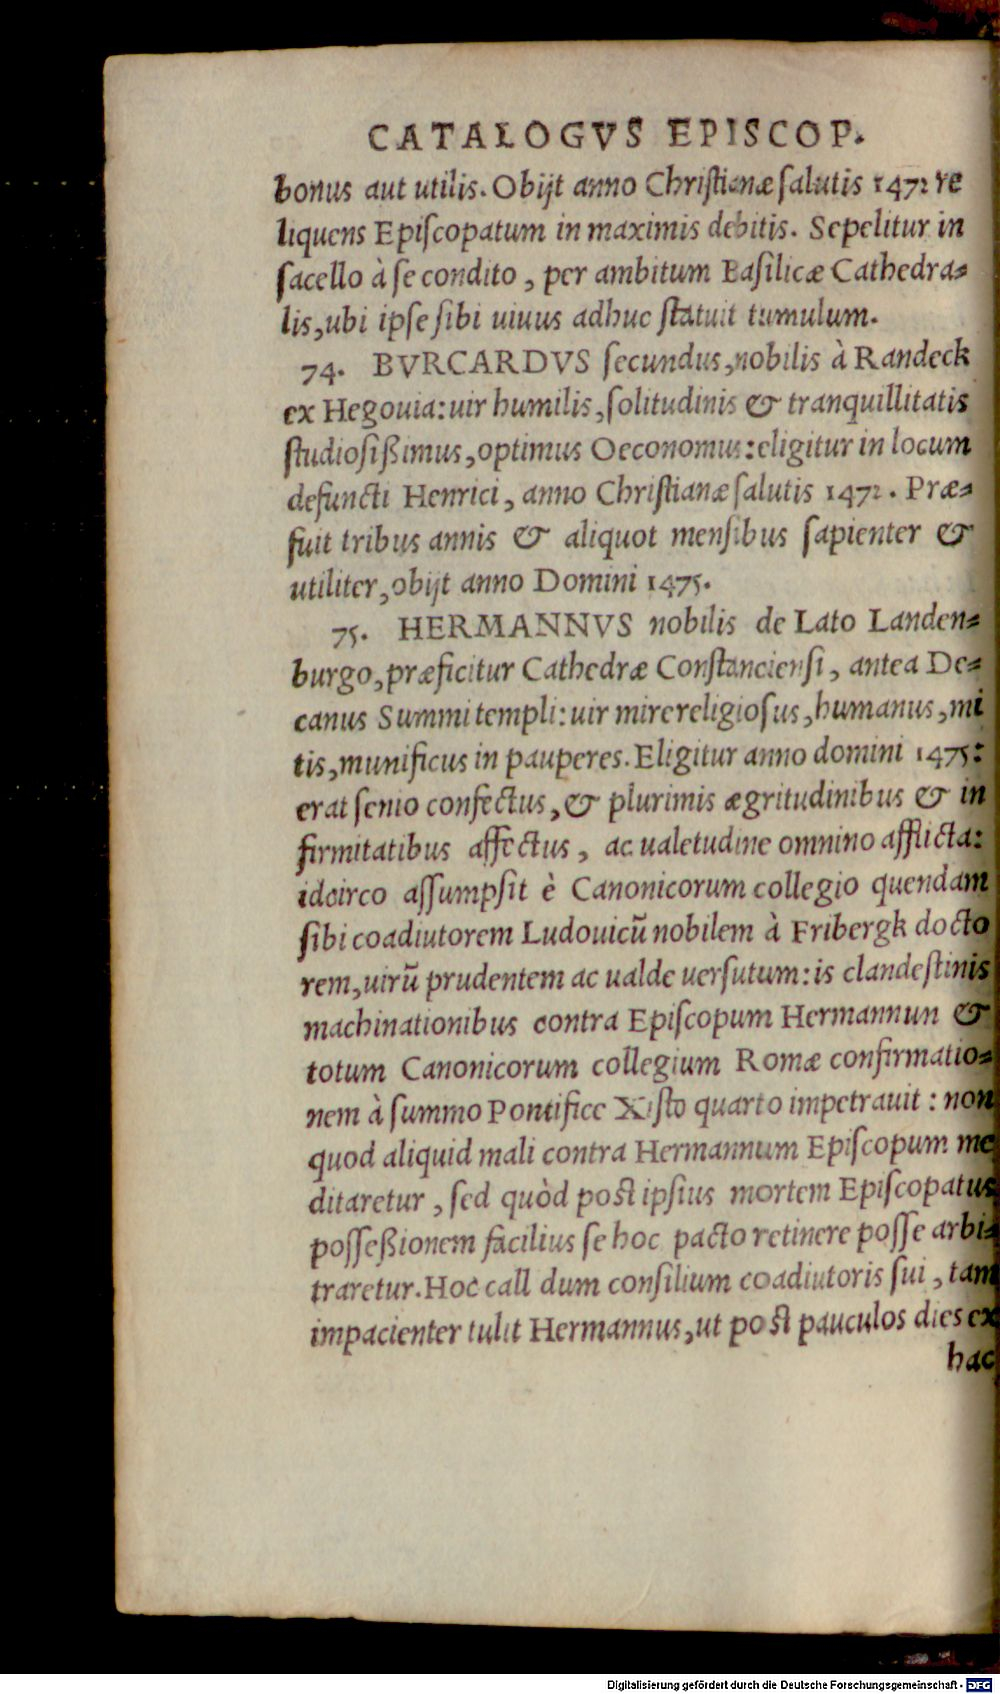 CATALOGVS EPISCOP.
bonus aut utilis. Obijt anno Christianæ salutis 1472 re
liquens Episcopatum in maximis debitis. Sepelitur in
sacello à se condito, per ambitum Basilicæ Cathedra=
lis, ubi ipse sibi uiuus adhuc statuit tumulum.
74. BVRCARDVS secundus, nobilis à Randeck
ex Hegouia: uir humilis, solitudinis & tranquillitatis
studiosißimus, optimus Oeconomus: eligitur in locum
defuncti Henrici, anno Christianæ salutis 1472. Præ=
fuit tribus annis & aliquot mensibus sapienter &
utiliter, obijt anno Domini 1475.
75. HERMANNVS nobilis de Lato Landen=
burgo, præficitur Cathedræ Constanciensi, antea De=
canus Summi templi: uir mire religiosus, humanus, mi
tis, munificus in pauperes. Eligitur anno domini 1475:
erat senio confectus, & plurimis ægritudinibus & in
firmitatibus affectus, ac ualetudine omnino afflicta:
idcirco assumpsit è Canonicorum collegio quendam
sibi coadiutorem Ludouicũ nobilem à Fribergk docto
rem, uirũ prudentem ac ualde uersutum: is clandestinis
machinationibus contra Episcopum Hermannun &
totum Canonicorum collegium Romæ confirmatio=
nem à summo Pontifice Xisto quarto impetrauit: non
quod aliquid mali contra Hermannum Episcopum me
ditaretur, sed quòd post ipsius mortem Episcopatus
possessionem facilius se hoc pacto retinere posse arbi=
traretur. Hoc call dum consilium coadiutoris sui, tam
impacienter tulit Hermannus, ut post pauculos dies ex
hac
Digitalisierung gefördert durch die Deutsche Forschungsgemeinschaft - DFG